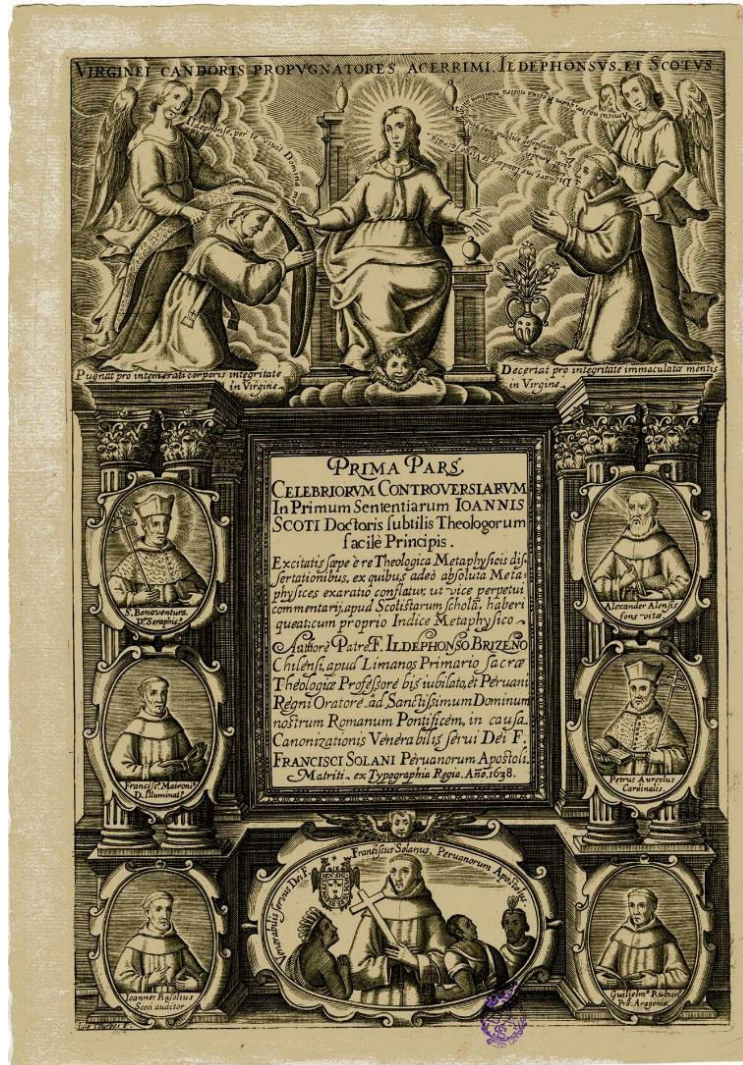 VIRGINEI CANDORIS PROPVGNATORES ACERRIMI. ILDEPHONSVS. ET SCOTVS
Ildephonse, per te viuit Domina
Pugnat pro intemerati corporis integritate
in Virgine.
Decertat pro integritate immaculatæ mentis
in Virgine.
PRIMA PARS
CELEBRIORVM CONTROVERSIARVM
In Primum Sententiarum IOANNIS
SCOTI Doctoris subtilis Theologorum
facilè Principis.
Excitatis sæpe è re Theologica Metaphysicis dis-
sertationibus, ex quibus adeò absoluta Meta-
physices exaratio conflatur, ut vice perpetui
commentarij, apud Scotistarum scholã, haberi
queat; cum proprio Indice Metaphysico.
Authore Patre F. ILDEPHONSO BRIZEÑO
Chilensi, apud Limanos Primario sacræ
Theologiæ Professore bis iubilato, et Peruani
Regni Oratore ad Sanctissimum Dominum
nostrum Romanum Pontificem, in causa
Canonizationis Venerabilis serui Dei F.
FRANCISCI SOLANI Peruanorum Apostoli.
Matriti. ex Typographia Regia. Año. 1638.
S. Bonauentura.
Dr. Seraphic.
Alexander Alensis
fons vitæ
Francisc. Maironi
D. Illuminat.
Petrus Aureolus
Cardinalis.
Venerabilis seruus Dei F. Franciscus Solanus, Peruanorum Apostolus
Ioannes Bassolius
Scoti auditor
Guilielm. Rubion
Pro. Aragoniæ